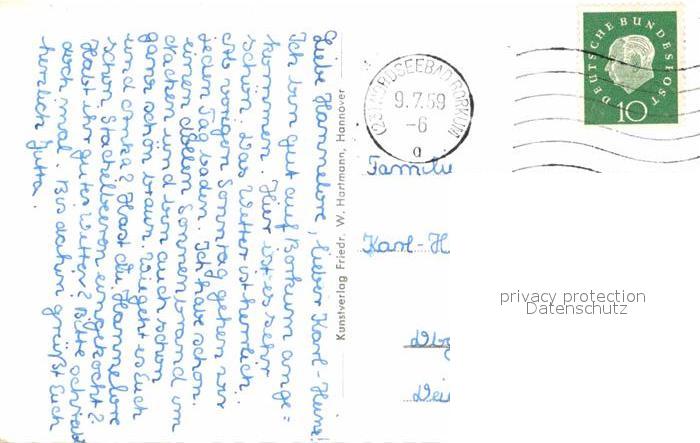 Liebe Hannelore, lieber Karl-Heinz!
Ich bin gut auf Borkum ange=
kommen. Hier ist es sehr
schön. Das Wetter ist herrlich
Ab vorigen Sonntag gehen wir
jeden Tag baden. Ich habe schon
einen dollen Sonnenbrand im
Nacken und bin auch schon
ganz schön braun. Wie geht es Euch
und Anka? Hast du Hannelore
schon Stachelbeeren eingekocht?
Habt ihr gutes Wetter? Bitte schreibt
doch mal. Bis dahin grüßt Euch
herzlich Jutta.
Kunstverlag Friedr. W. Hartmann, Hannover
(23) NORDSEEBAD BORKUM
9.7.59
-6
a
DEUTSCHE BUNDESPOST
10
Familie
Karl-H
privacy protection
Datenschutz